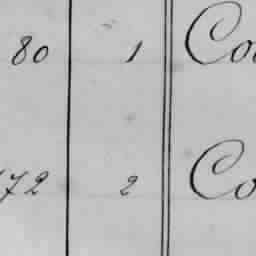 80 1 Co
72 2 Co